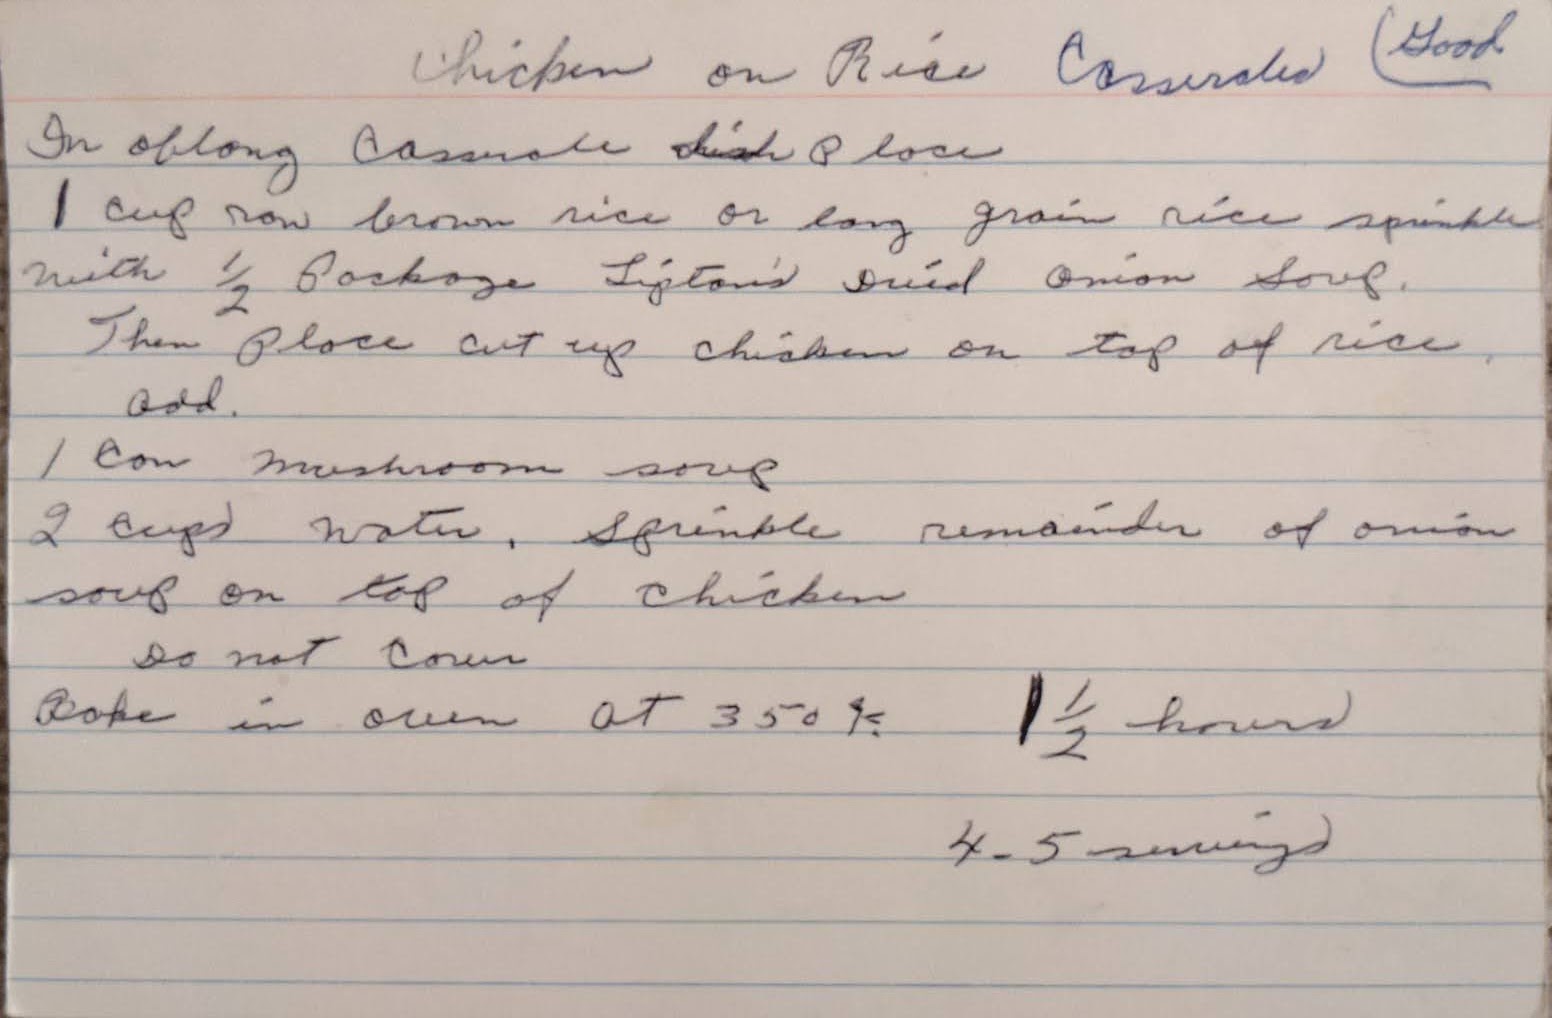 Chicken on Rice Casserole (Good
In oblong Casserole dish Place
1 cup raw brown rice or long grain rice sprinkle
with 1/2 Package Lipton's Dried Onion Soup.
Then Place cut up chicken on top of rice.
add.
1 Can mushroom soup
2 Cups water. Sprinkle remainder of onion
soup on top of chicken
Do not Cover
Bake in oven at 350 1 1/2 hours
4-5 servings